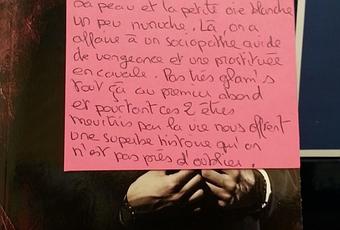 sa peau et la petite oie blanche
un peu nunuche. Là, on a
affaire à un sociopathe avide
de vengeance et une prostituée
en cavale. Pas très glam's
tout ça au premier abord
et pourtant ces 2 êtres
meurtris par la vie nous offrent
une superbe histoire qu'on
n'est pas près d'oublier.